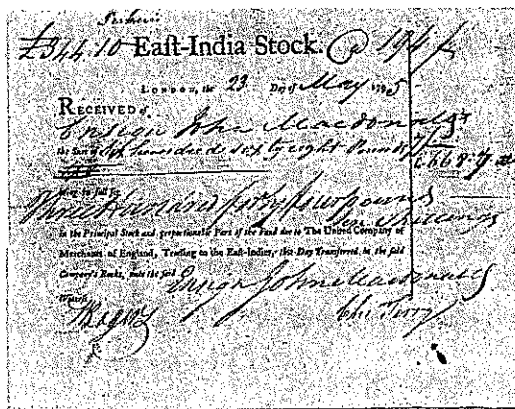 £344.10 East-India Stock. @ 194
LONDON, the 23 Day of May 1795
RECEIVED of
Ensign John Macdonald
the Sum of Six hundred sixty eight Pounds
£668.7
being in full for
Three Hundred forty four pounds
ten Shillings
in the Principal Stock and proportionable Part of the Fund due to The United Company of
Merchants of England, Trading to the East-Indies, this Day Transferred, in the said
Company's Books, unto the said
Ensign John Macdonald
Witness